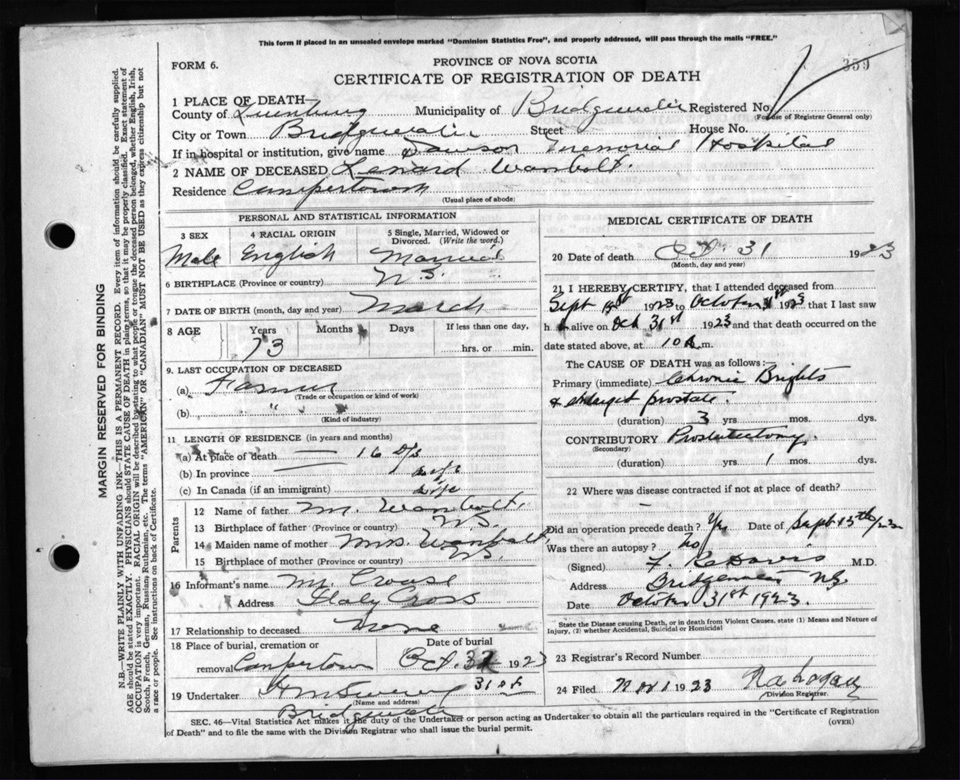 This form if placed in an unsealed envelope marked "Dominion Statistics Free", and properly addressed, will pass through the mails "FREE."
FORM 6.
PROVINCE OF NOVA SCOTIA
359
CERTIFICATE OF REGISTRATION OF DEATH
1 PLACE OF DEATH
County of Lunenburg Municipality of Bridgewater Registered No.
(For use of Registrar General only)
City or Town Bridgewater Street House No.
If in hospital or institution, give name Dawson Memorial Hospital
2 NAME OF DECEASED Lenard Wambolt.
Residence Campertown
(Usual place of abode)
PERSONAL AND STATISTICAL INFORMATION
3 SEX 4 RACIAL ORIGIN 5 Single, Married, Widowed or Divorced. (Write the word.)
Male English Married
6 BIRTHPLACE (Province or country) N.S.
7 DATE OF BIRTH (month, day and year) March
8 AGE Years Months Days If less than one day,
73 hrs. or min.
9. LAST OCCUPATION OF DECEASED
(a) Farmer
(Trade or occupation or kind of work)
(b) "
(Kind of industry)
11 LENGTH OF RESIDENCE (in years and months)
(a) At place of death — 16 D/s
(b) In province
(c) In Canada (if an immigrant)
Parents
12 Name of father Mr. Wambolt.
13 Birthplace of father (Province or country) NS.
14 Maiden name of mother Mrs Wambolt,
15 Birthplace of mother (Province or country) NS
16 Informant's name Mr. Crouse
Address Italy Cross
17 Relationship to deceased None
18 Place of burial, cremation or removal Date of burial
Campertown Oct. 1923
31st
19 Undertaker
(Name and address)
Bridgewater
MEDICAL CERTIFICATE OF DEATH
20 Date of death Oct. 31 1923
(Month, day and year)
21 I HEREBY CERTIFY, that I attended deceased from
Sept 1923 to October 31st 1923 that I last saw
h alive on Oct 31st 1923 and that death occurred on the
date stated above, at 10 m.
The CAUSE OF DEATH was as follows:—
Primary (immediate) Chronic Brights
& enlarged prostate.
(duration) 3 yrs mos. dys.
CONTRIBUTORY Prostatectomy.
(Secondary)
(duration) yrs 1 mos. dys.
22 Where was disease contracted if not at place of death?
Did an operation precede death? Yes Date of Sept 15th/23
Was there an autopsy? No
(Signed) F. R. Davis M.D.
Address Bridgewater NS.
Date October 31st 1923.
State the Disease causing Death, or in death from Violent Causes, state (1) Means and Nature of
Injury, (2) whether Accidental, Suicidal or Homicidal
23 Registrar's Record Number
24 Filed Nov 1 1923
Division Registrar.
SEC. 46—Vital Statistics Act makes it the duty of the Undertaker or person acting as Undertaker to obtain all the particulars required in the "Certificate of Registration
of Death" and to file the same with the Division Registrar who shall issue the burial permit. (OVER)
MARGIN RESERVED FOR BINDING
N.B.—WRITE PLAINLY WITH UNFADING INK—THIS IS A PERMANENT RECORD. Every item of information should be carefully supplied.
AGE should be stated EXACTLY. PHYSICIANS should STATE CAUSE OF DEATH in plain terms, so that it may be properly classified. Exact statement of
OCCUPATION is very important. RACIAL ORIGIN will be described by stating to what people or tongue the deceased person belonged, whether English, Irish,
Scotch, French, German, Russian, Ruthenian, etc. The terms "AMERICAN" OR "CANADIAN" MUST NOT BE USED as they express citizenship but not
a race or people. See instructions on back of Certificate.